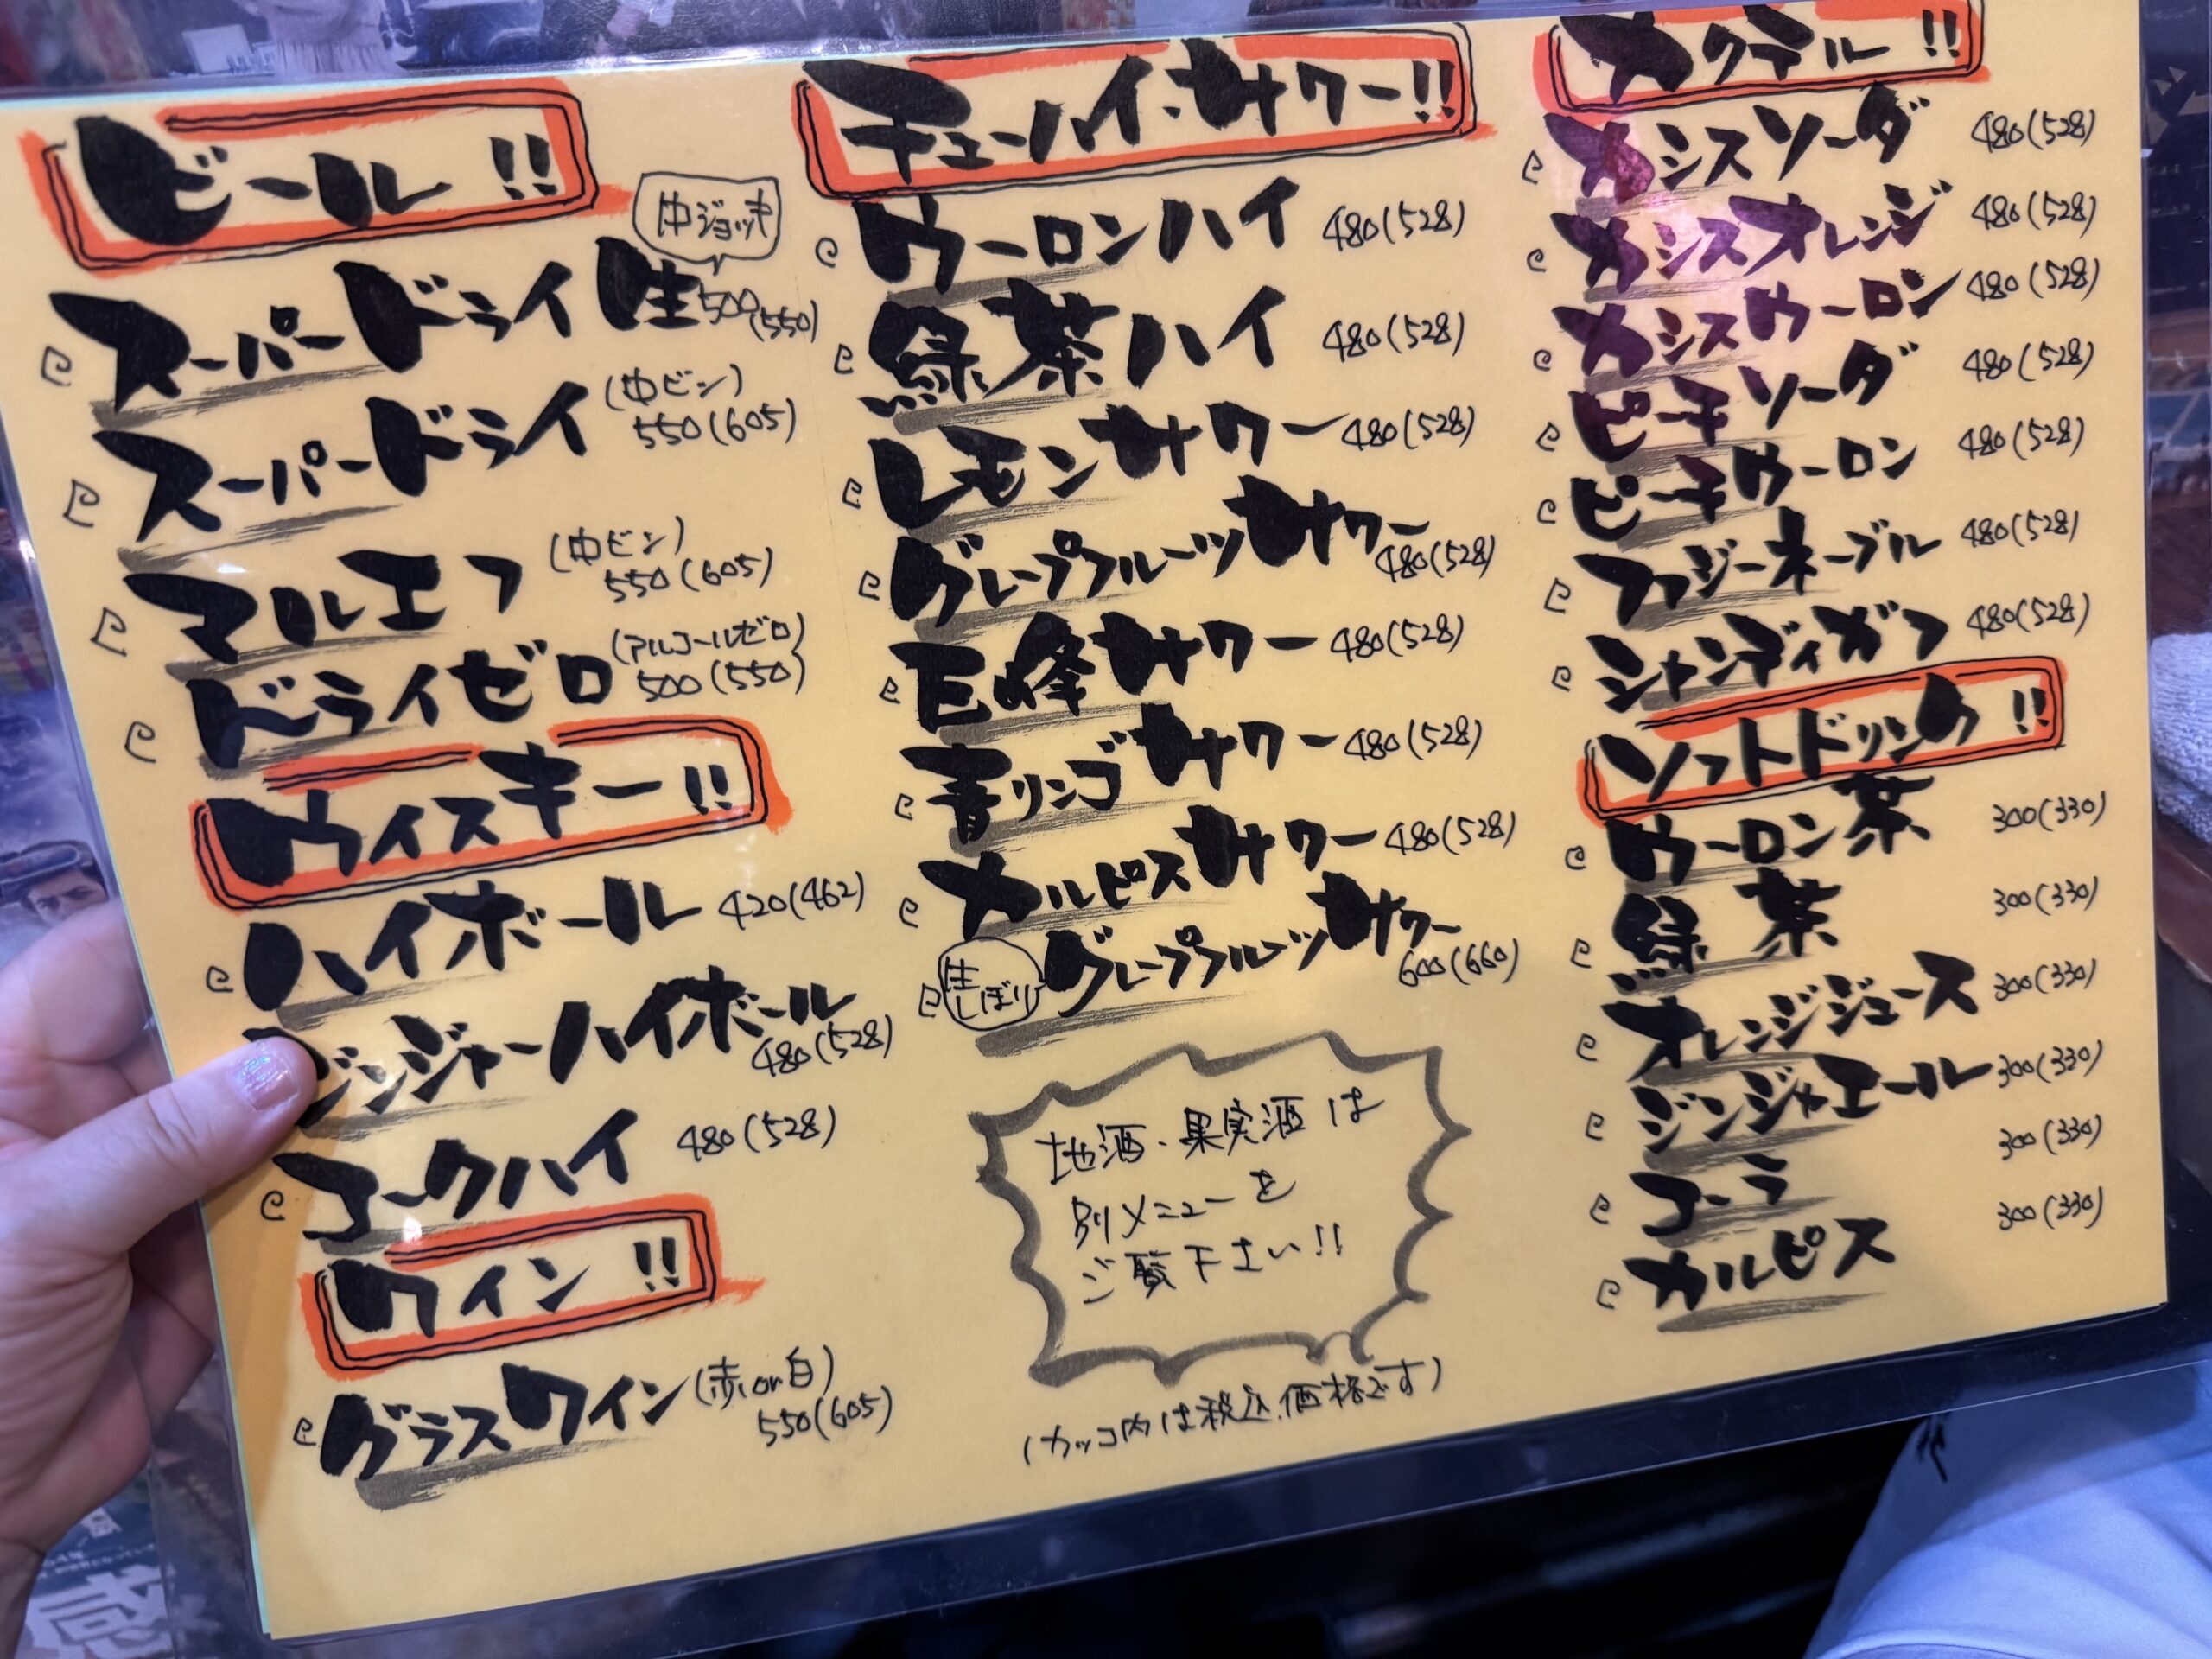 ビール!!
中ジョッキ
スーパードライ 生 500(550)
スーパードライ (中ビン) 550(605)
マルエフ (中ビン) 550(605)
ドライゼロ (アルコールゼロ) 500(550)
ウイスキー!!
ハイボール 420(462)
ジンジャーハイボール 480(528)
コークハイ 480(528)
ワイン!!
グラスワイン (赤or白) 550(605)
チューハイ・サワー!!
ウーロンハイ 480(528)
緑茶ハイ 480(528)
レモンサワー 480(528)
グレープフルーツサワー 480(528)
巨峰サワー 480(528)
青リンゴサワー 480(528)
カルピスサワー 480(528)
生しぼり グレープフルーツサワー 600(660)
地酒・果実酒は
別メニューを
ご覧下さい!!
(カッコ内は税込価格です)
カクテル!!
カシスソーダ 480(528)
カシスオレンジ 480(528)
カシスウーロン 480(528)
ピーチソーダ 480(528)
ピーチウーロン 480(528)
ファジーネーブル 480(528)
シャンディガフ 480(528)
ソフトドリンク!!
ウーロン茶 300(330)
緑茶 300(330)
オレンジジュース 300(330)
ジンジャエール 300(330)
コーラ 300(330)
カルピス 300(330)
感